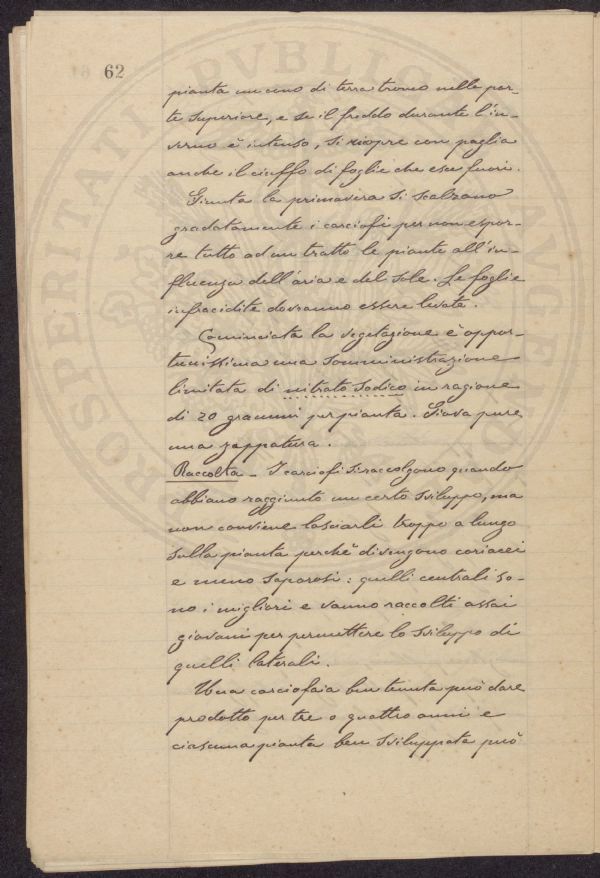 62
pianta un cono di terra tronco nella par-
te superiore, e se il freddo durante l'in-
verno è intenso, si ricopre con paglia
anche il ciuffo di foglie che esce fuori.
Giunta la primavera si scalzano
gradatamente i carciofi per non espor-
re tutto ad un tratto le piante all'in-
fluenza dell'aria e del sole. Le foglie
infracidite dovranno essere levate.
Cominciata la vegetazione è oppor-
tunissima una somministrazione
limitata di nitrato sodico in ragione
di 20 grammi per pianta. Giova pure
una zappatura.
Raccolta - I carciofi si raccolgono quando
abbiano raggiunto un certo sviluppo, ma
non conviene lasciarli troppo a lungo
sulla pianta perchè divengono coriacei
e meno saporosi: quelli centrali so-
no i migliori e vanno raccolti assai
giovani per permettere lo sviluppo di
quelli laterali.
Una carciofaia ben tenuta può dare
prodotto per tre o quattro anni e
ciascuna pianta ben sviluppata può